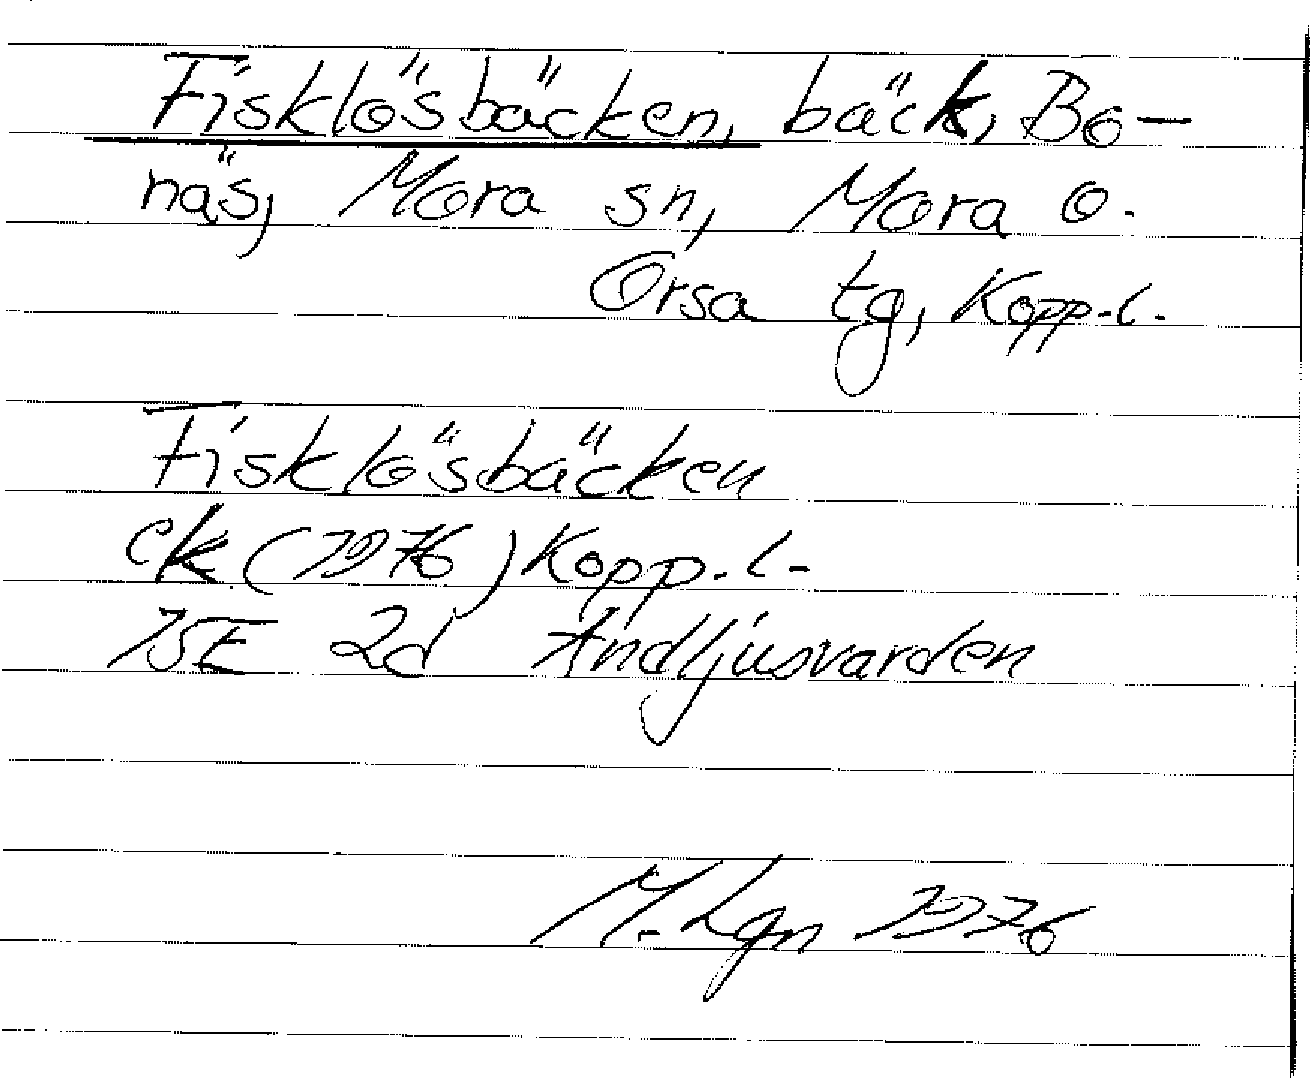 Fisklösbäcken, bäck, Bo-
näs, Mora sn, Mora o.
Orsa tg, Kopp.l.
Fisklösbäcken
ek (1976) Kopp.l.
15E 2d Åndljusvarden
M. Lgn 1976